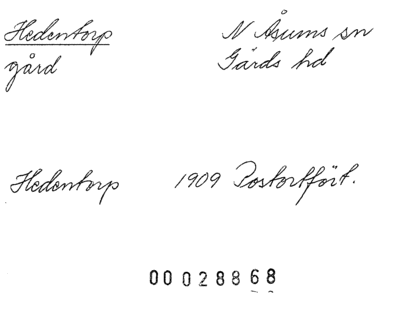 Hedentorp N Åsums sn
gård Gärds hd
Hedentorp 1909 Postortför t.
00028868